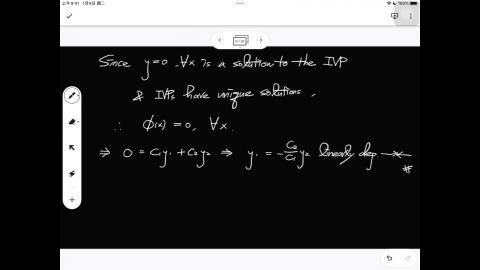 上午9:41 1月9日 週二
100%
Since y=0, ∀x is a solution to the IVP
& IVPs have unique solutions,
∴ ϕ(x) = 0, ∀x.
⇒ 0 = C₁y₁ + C₂y₂ ⇒ y₁ = -C₂/C₁ y₂ linearly dep
#